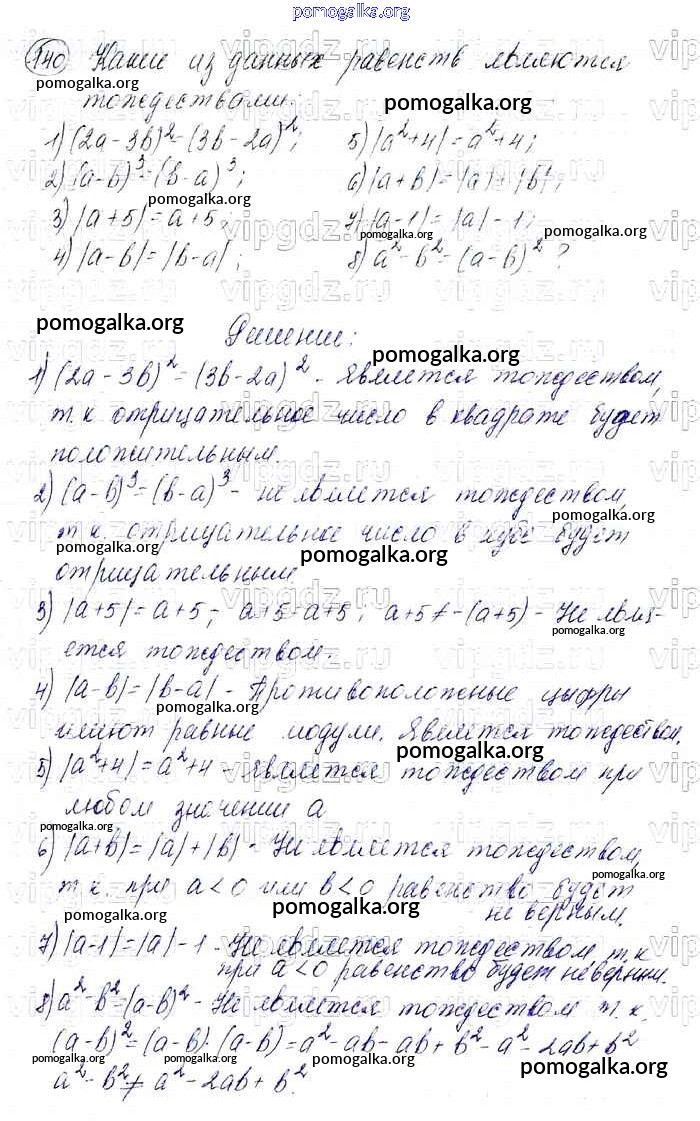 pomogalka.org
140 Какие из данных равенств являются
pomogalka.org
тождествами:
pomogalka.org
1) (2a-3b)²=(3b-2a)²; 5) |a²+4|=a²+4;
2) (a-b)³=(b-a)³; 6) |a+b|=|a|+|b|;
pomogalka.org
3) |a+5|=a+5; 7) |a-1|=|a|-1;
pomogalka.org
vipgdz.ru
4) |a-b|=|b-a|; 8) a²-b²=(a-b)²?
pomogalka.org
Решение:
pomogalka.org
1) (2a-3b)²=(3b-2a)² - является тождеством,
т.к отрицательное число в квадрате будет
положительным.
2) (a-b)³=(b-a)³ - не является тождеством,
pomogalka.org
т к. отрицательное число в кубе будет
pomogalka.org
отрицательным
3) |a+5|=a+5 -; a+5=a+5; a+5≠-(a+5) - Не явля-
pomogalka.org
ется тождеством.
4) |a-b|=|b-a| - Противоположные цифры
pomogalka.org
имеют равные модули. Является тождеством.
pomogalka.org
5) |a²+4|=a²+4 - является тождеством при
любом значении a
pomogalka.org
6) |a+b|=|a|+|b| - Не является тождеством,
pomogalka.org
т к. при a<0 или b<0 равенство будет
pomogalka.org
не верным.
pomogalka.org
7) |a-1|=|a|-1 - Не является тождеством, т.к
при a<0 равенство будет неверным.
8) a²-b²=(a-b)² - Не является тождеством т.к.
pomogalka.org
(a-b)²=(a-b)·(a-b)=a²-ab-ab+b²=a²-2ab+b²
pomogalka.org
pomogalka.org
a²-b²≠a²-2ab+b².
pomogalka.org